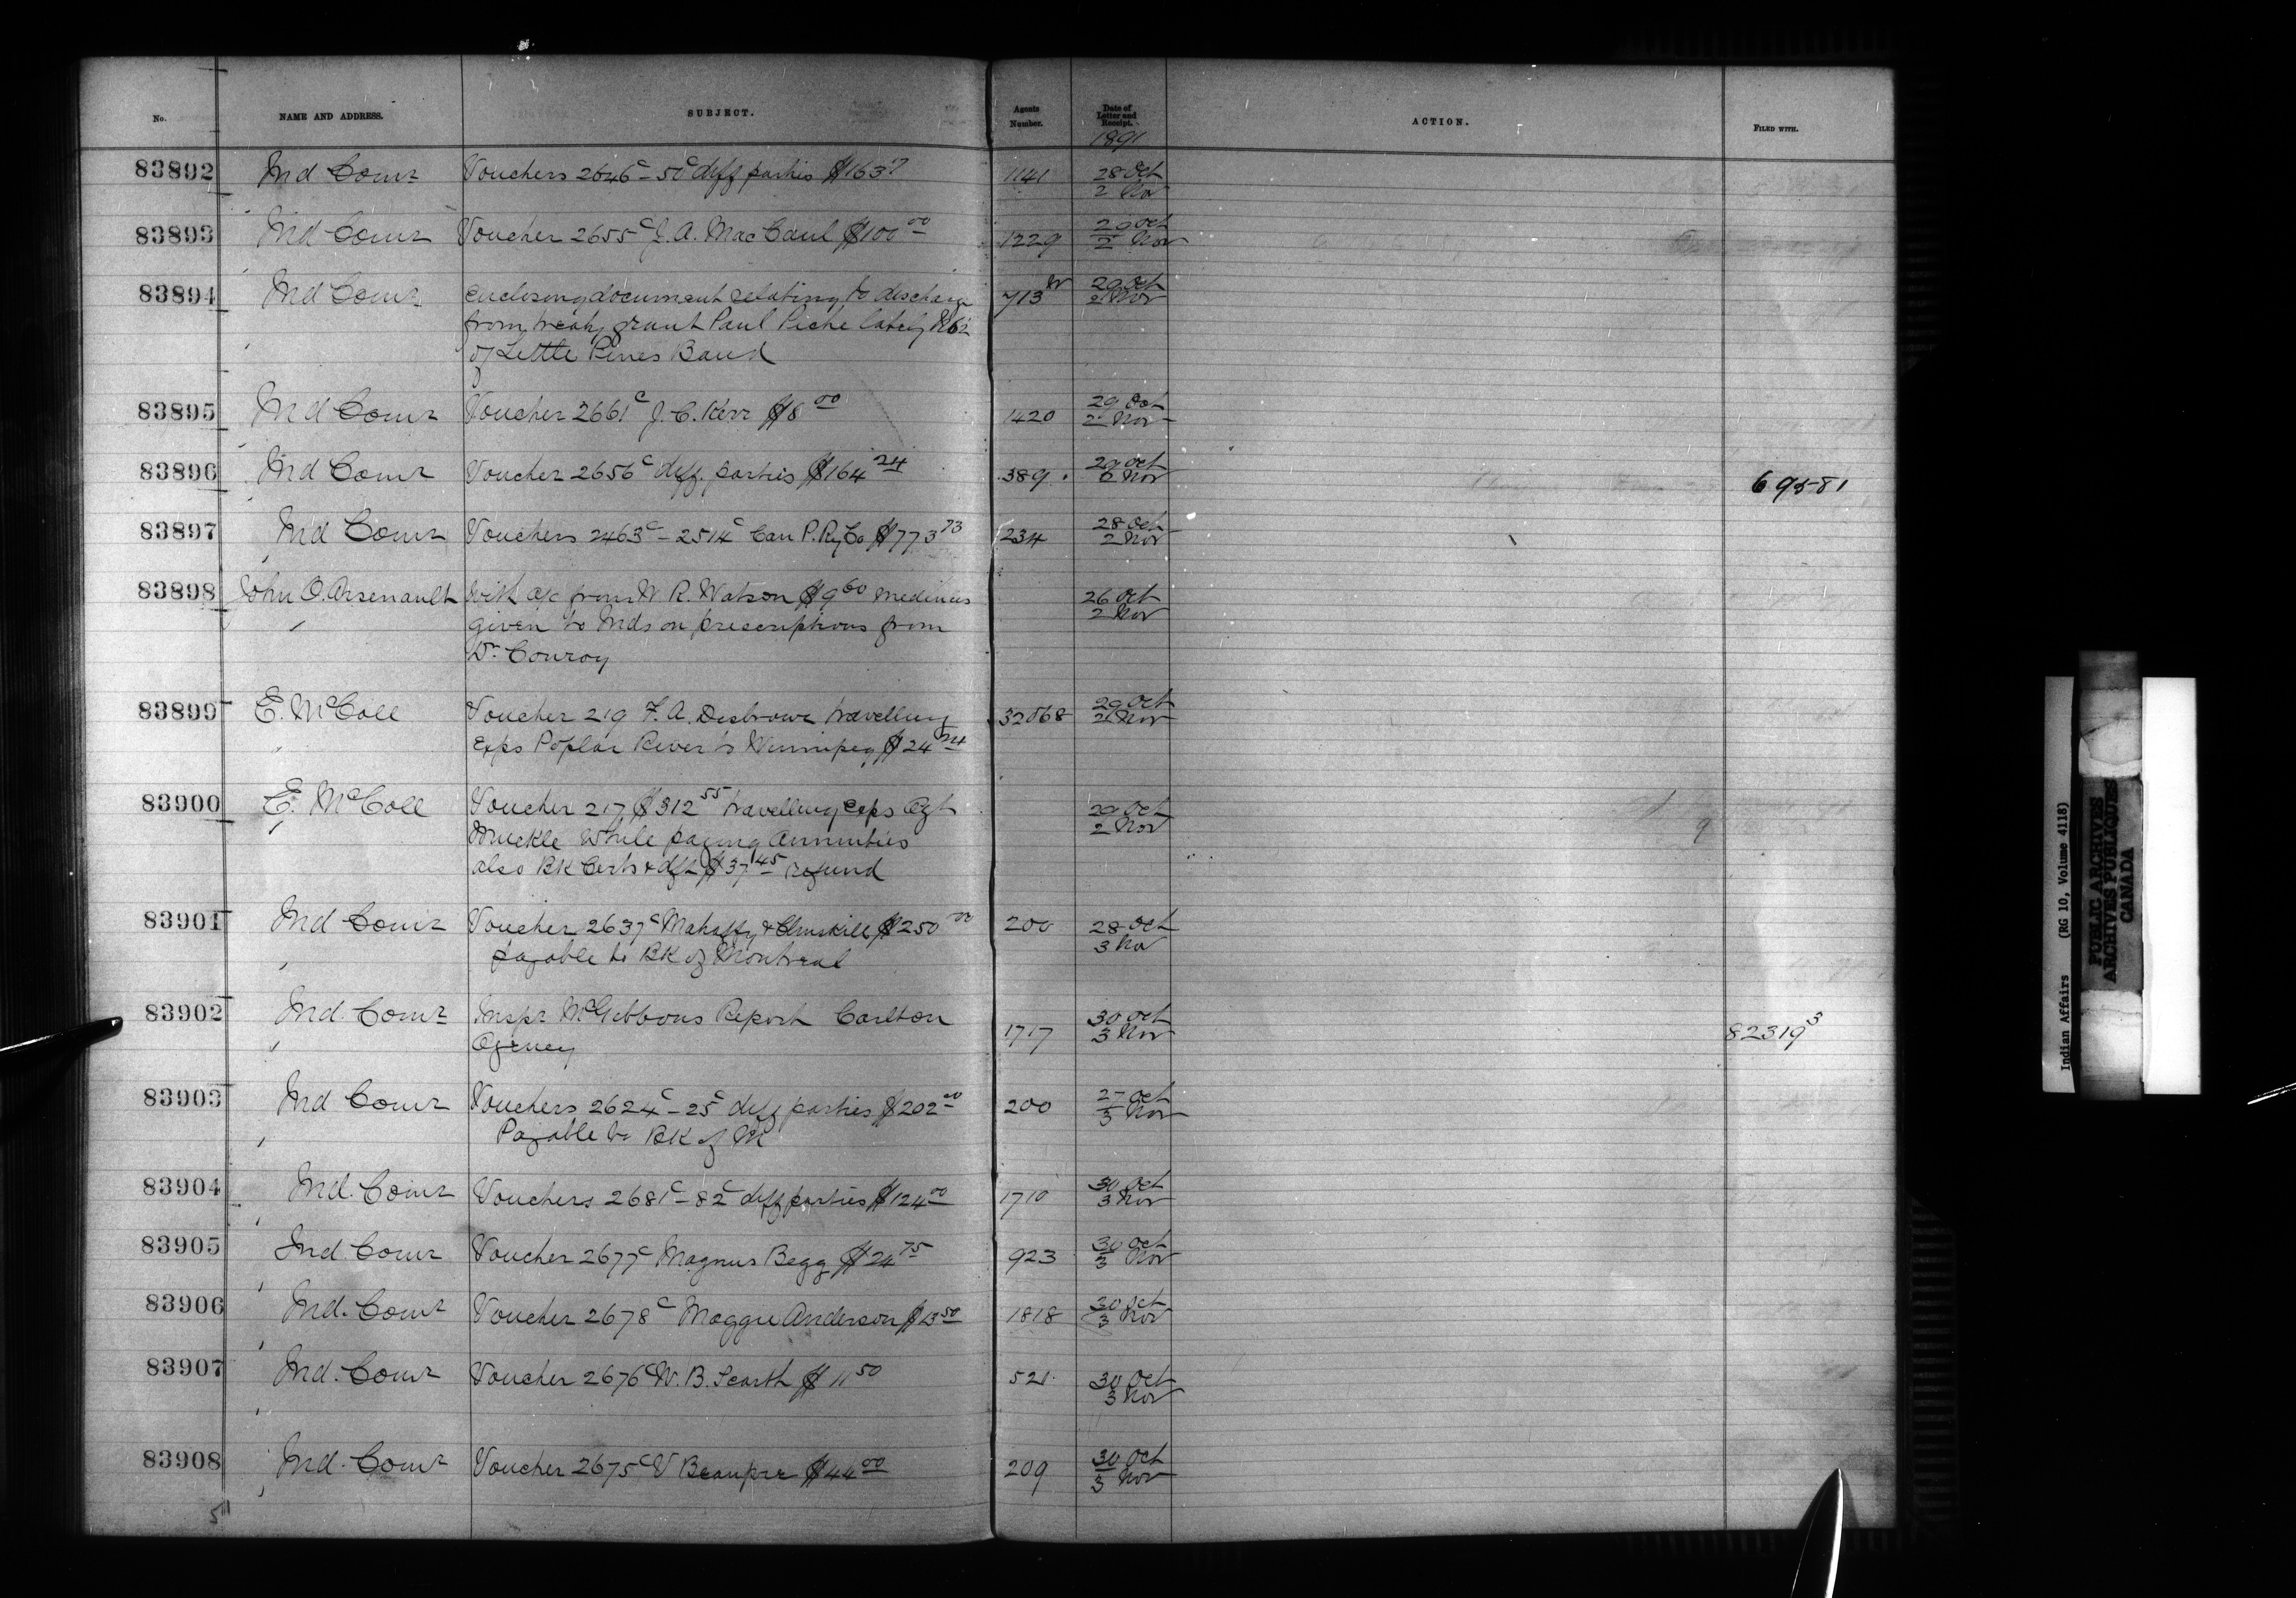 No. NAME AND ADDRESS. SUBJECT. Agents Number. Date of Letter and Receipt. ACTION. FILED WITH.
1891
83892 Ind Comr Vouchers 2646c - 50c diff parties $163 1141 28 Oct
2 Nov
83893 Ind Comr Voucher 2655c J. A. MacCaul $100 00 1229 29 Oct
2 Nov
83894 Ind Comr Enclosing document relating to discharge 713 29 Oct
2 Nov
from treaty grant Paul Piche lately No 62
of Little Pines Band
83895 Ind Comr Voucher 2661c J. C. Kerr $8 00 1420 29 Oct
2 Nov
83896 Ind Comr Voucher 2656c diff. parties $164 24 389 29 Oct
Nov 69581
83897 Ind Comr Vouchers 2463c - 2514c Can P. Ry Co $773 73 234 28 Oct
2 Nov
83898 John O. Arsenault with a/c from W R. Watson $9 60 medicines 26 Oct
given to Inds on prescriptions from 2 Nov
Dr Conroy
83899 E. McColl Voucher 219 F. A. Disbrowe travelling 32068 29 Oct
2 Nov
exps Poplar River to Winnipeg $24 24
83900 E. McColl Voucher 217 $312 55 travelling exps Agt 29 Oct
Muckle while paying annuities 2 Nov
also BK Certs & dft $37 45 refund
83901 Ind Comr Voucher 2637c Mahaffy & Clinskill $250 00 200 28 Oct
payable to BK of Montreal 3 Nov
83902 Ind. Comr Inspr McGibbons Report Carlton 1717 30 Oct
Agency 3 Nov 82319 3
83903 Ind Comr Vouchers 2624c - 25c diff parties $202 00 200 27 Oct
3 Nov
Payable to BK of M
83904 Ind. Comr Vouchers 2681c - 82c diff parties $124 00 1710 30 Oct
3 Nov
83905 Ind Comr Voucher 2677c Magnus Begg $24 75 923 30 Oct
3 Nov
83906 Ind. Comr Voucher 2678c Maggie Anderson $13 50 1818 30 Oct
3 Nov
83907 Ind. Comr Voucher 2676c W. B. Scarth $11 50 521 30 Oct
3 Nov
83908 Ind. Comr Voucher 2675c V Beaupre $44 00 209 30 Oct
3 Nov
Indian Affairs (RG 10, Volume 4118)
PUBLIC ARCHIVES
ARCHIVES PUBLIQUES
CANADA